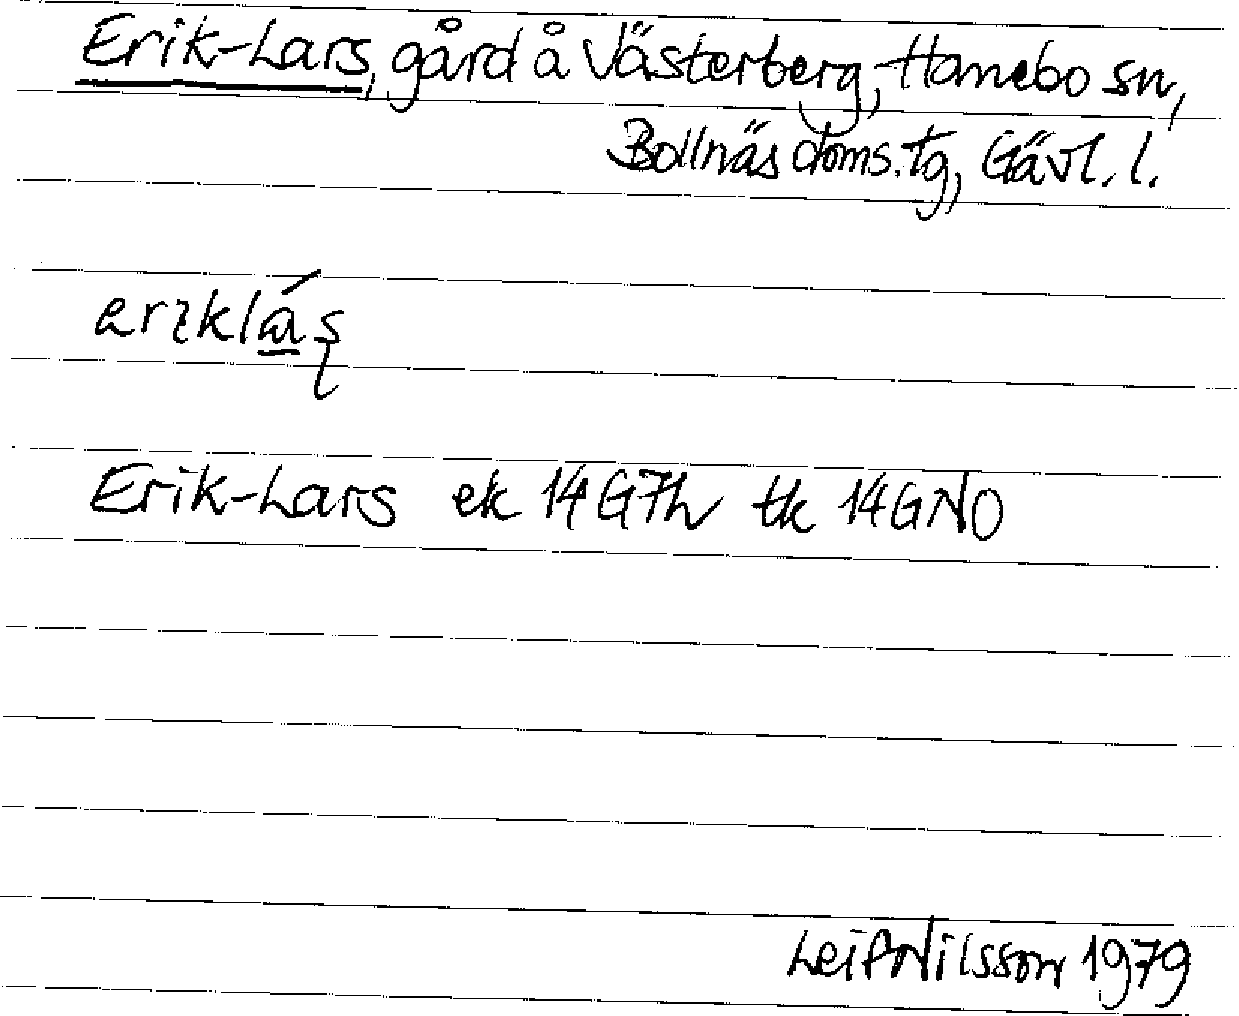 Erik-Lars, gård å Västerberg, Hanebo sn,
Bollnäs doms. tg, Gävl. l.
Erik-Lars ek 14G7h tk 14GNO
Leif Nilsson 1979